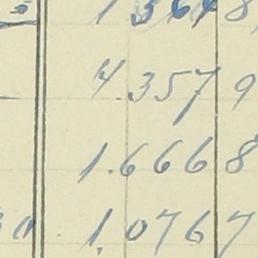 1 364 8
4.357 9
1.666 8
1.076 7